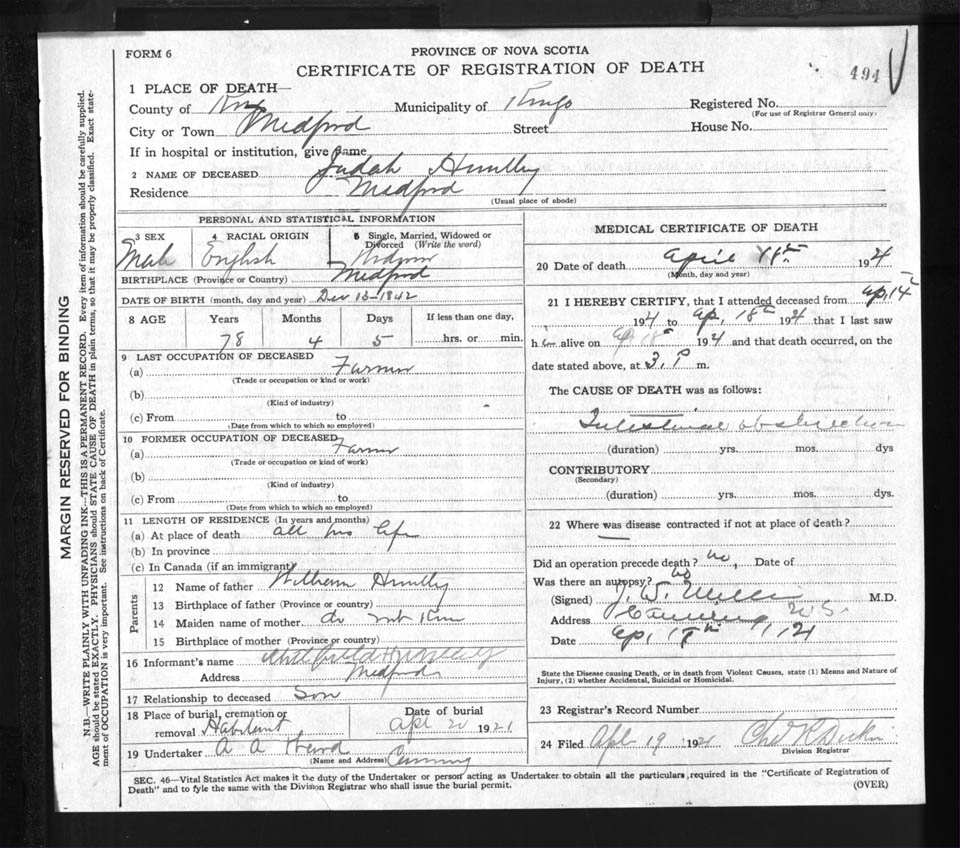 FORM 6
PROVINCE OF NOVA SCOTIA
CERTIFICATE OF REGISTRATION OF DEATH
494
1 PLACE OF DEATH—
County of Kings Municipality of Kings Registered No.
(For use of Registrar General only)
City or Town Medford Street House No.
If in hospital or institution, give name
2 NAME OF DECEASED Judah Huntley
Residence Medford
(Usual place of abode)
PERSONAL AND STATISTICAL INFORMATION
3 SEX 4 RACIAL ORIGIN 5 Single, Married, Widowed or Divorced (Write the word)
Male English Widower
BIRTHPLACE (Province or Country) Medford
DATE OF BIRTH (month, day and year) Dec 13-1842
8 AGE Years Months Days If less than one day,
78 4 5 hrs. or min.
9 LAST OCCUPATION OF DECEASED
(a) Farmer
(Trade or occupation or kind or work)
(b)
(Kind of industry)
(c) From to
(Date from which to which so employed)
10 FORMER OCCUPATION OF DECEASED
(a) Farmer
(Trade or occupation or kind of work)
(b)
(Kind of industry)
(c) From to
(Date from which to which so employed)
11 LENGTH OF RESIDENCE (In years and months)
(a) At place of death all his life
(b) In province
(c) In Canada (if an immigrant)
Parents
12 Name of father William Huntley
13 Birthplace of father (Province or country)
14 Maiden name of mother do not know
15 Birthplace of mother (Province or country)
16 Informant's name Huntley
Address Medford
17 Relationship to deceased Son
18 Place of burial, cremation or removal Habitant
Date of burial Apl 20 1921
19 Undertaker A A
(Name and Address) Canning
MEDICAL CERTIFICATE OF DEATH
20 Date of death April 18th 1921
(Month, day and year)
21 I HEREBY CERTIFY, that I attended deceased from Ap, 14th
1921 to Ap, 18th 1921 that I last saw
h im alive on Ap 18th 1921 and that death occurred, on the
date stated above, at 3. P m.
The CAUSE OF DEATH was as follows:
Intestinal obstruction
(duration) yrs. mos. dys
CONTRIBUTORY
(Secondary)
(duration) yrs. mos. dys.
22 Where was disease contracted if not at place of death?
Did an operation precede death? no, Date of
Was there an autopsy? no
(Signed) J. W. Miller M.D.
Address Canning N.S.
Date Ap, 19th, 1921
State the Disease causing Death, or in death from Violent Causes, state (1) Means and Nature of
Injury, (2) whether Accidental, Suicidal or Homicidal.
23 Registrar's Record Number
24 Filed Apl 19 1921
Division Registrar
SEC. 46—Vital Statistics Act makes it the duty of the Undertaker or person acting as Undertaker to obtain all the particulars required in the "Certificate of Registration of
Death" and to fyle the same with the Division Registrar who shall issue the burial permit.
(OVER)
MARGIN RESERVED FOR BINDING
N.B.—WRITE PLAINLY WITH UNFADING INK—THIS IS A PERMANENT RECORD. Every item of information should be carefully supplied.
AGE should be stated EXACTLY. PHYSICIANS should STATE CAUSE OF DEATH in plain terms, so that it may be properly classified. Exact state-
ment of OCCUPATION is very important. See instructions on back of Certificate.